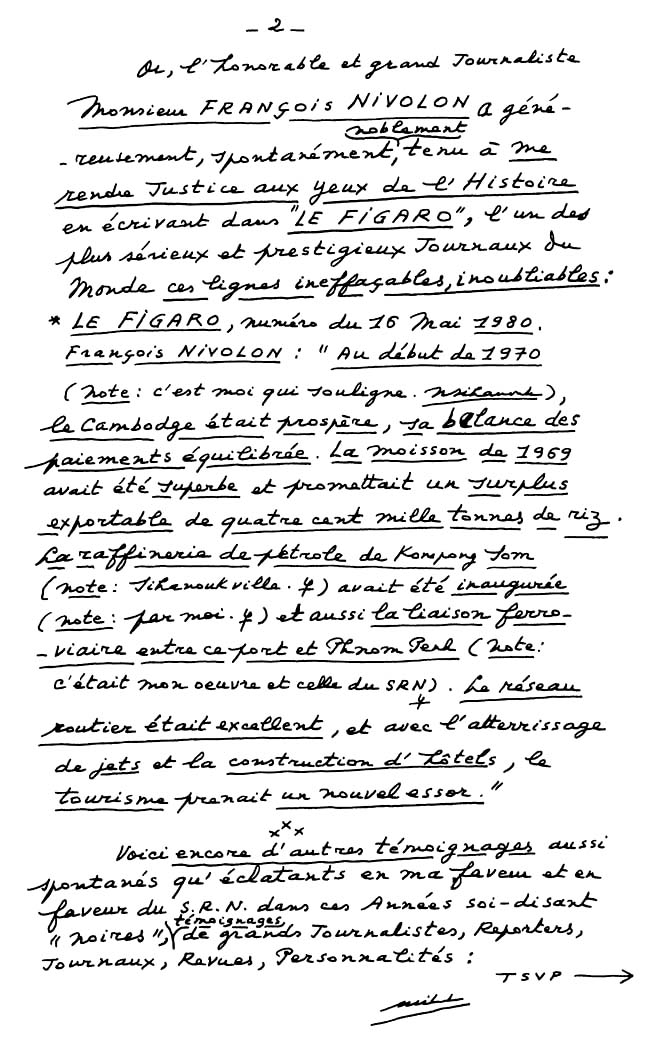 - 2 -
Or, l'honorable et grand Journaliste
Monsieur FRANÇOIS NIVOLON a géné-
noblement
- reusement, spontanément, tenu à me
rendre Justice aux yeux de l'Histoire
en écrivant dans "LE FIGARO", l'un des
plus sérieux et prestigieux Journaux du
Monde ces lignes ineffaçables, inoubliables :
* LE FIGARO, numéro du 16 Mai 1980.
François NIVOLON : "Au début de 1970
(note : c'est moi qui souligne. NSihanouk),
le Cambodge était prospère, sa balance des
paiements équilibrée. La moisson de 1969
avait été superbe et promettait un surplus
exportable de quatre cent mille tonnes de riz.
La raffinerie de pétrole de Kompong Som
(note : Sihanoukville.) avait été inaugurée
(note : par moi.) et aussi la liaison ferro-
- viaire entre ce port et Phnom Penh (note :
c'était mon oeuvre et celle du SRN). Le réseau
routier était excellent, et avec l'atterrissage
de jets et la construction d'hôtels, le
tourisme prenait un nouvel essor."
xxx
Voici encore d'autres témoignages aussi
spontanés qu'éclatants en ma faveur et en
faveur du S.R.N. dans ces Années soi-disant
témoignages
"noires", de grands Journalistes, Reporters,
Journaux, Revues, Personnalités :
TSVP →